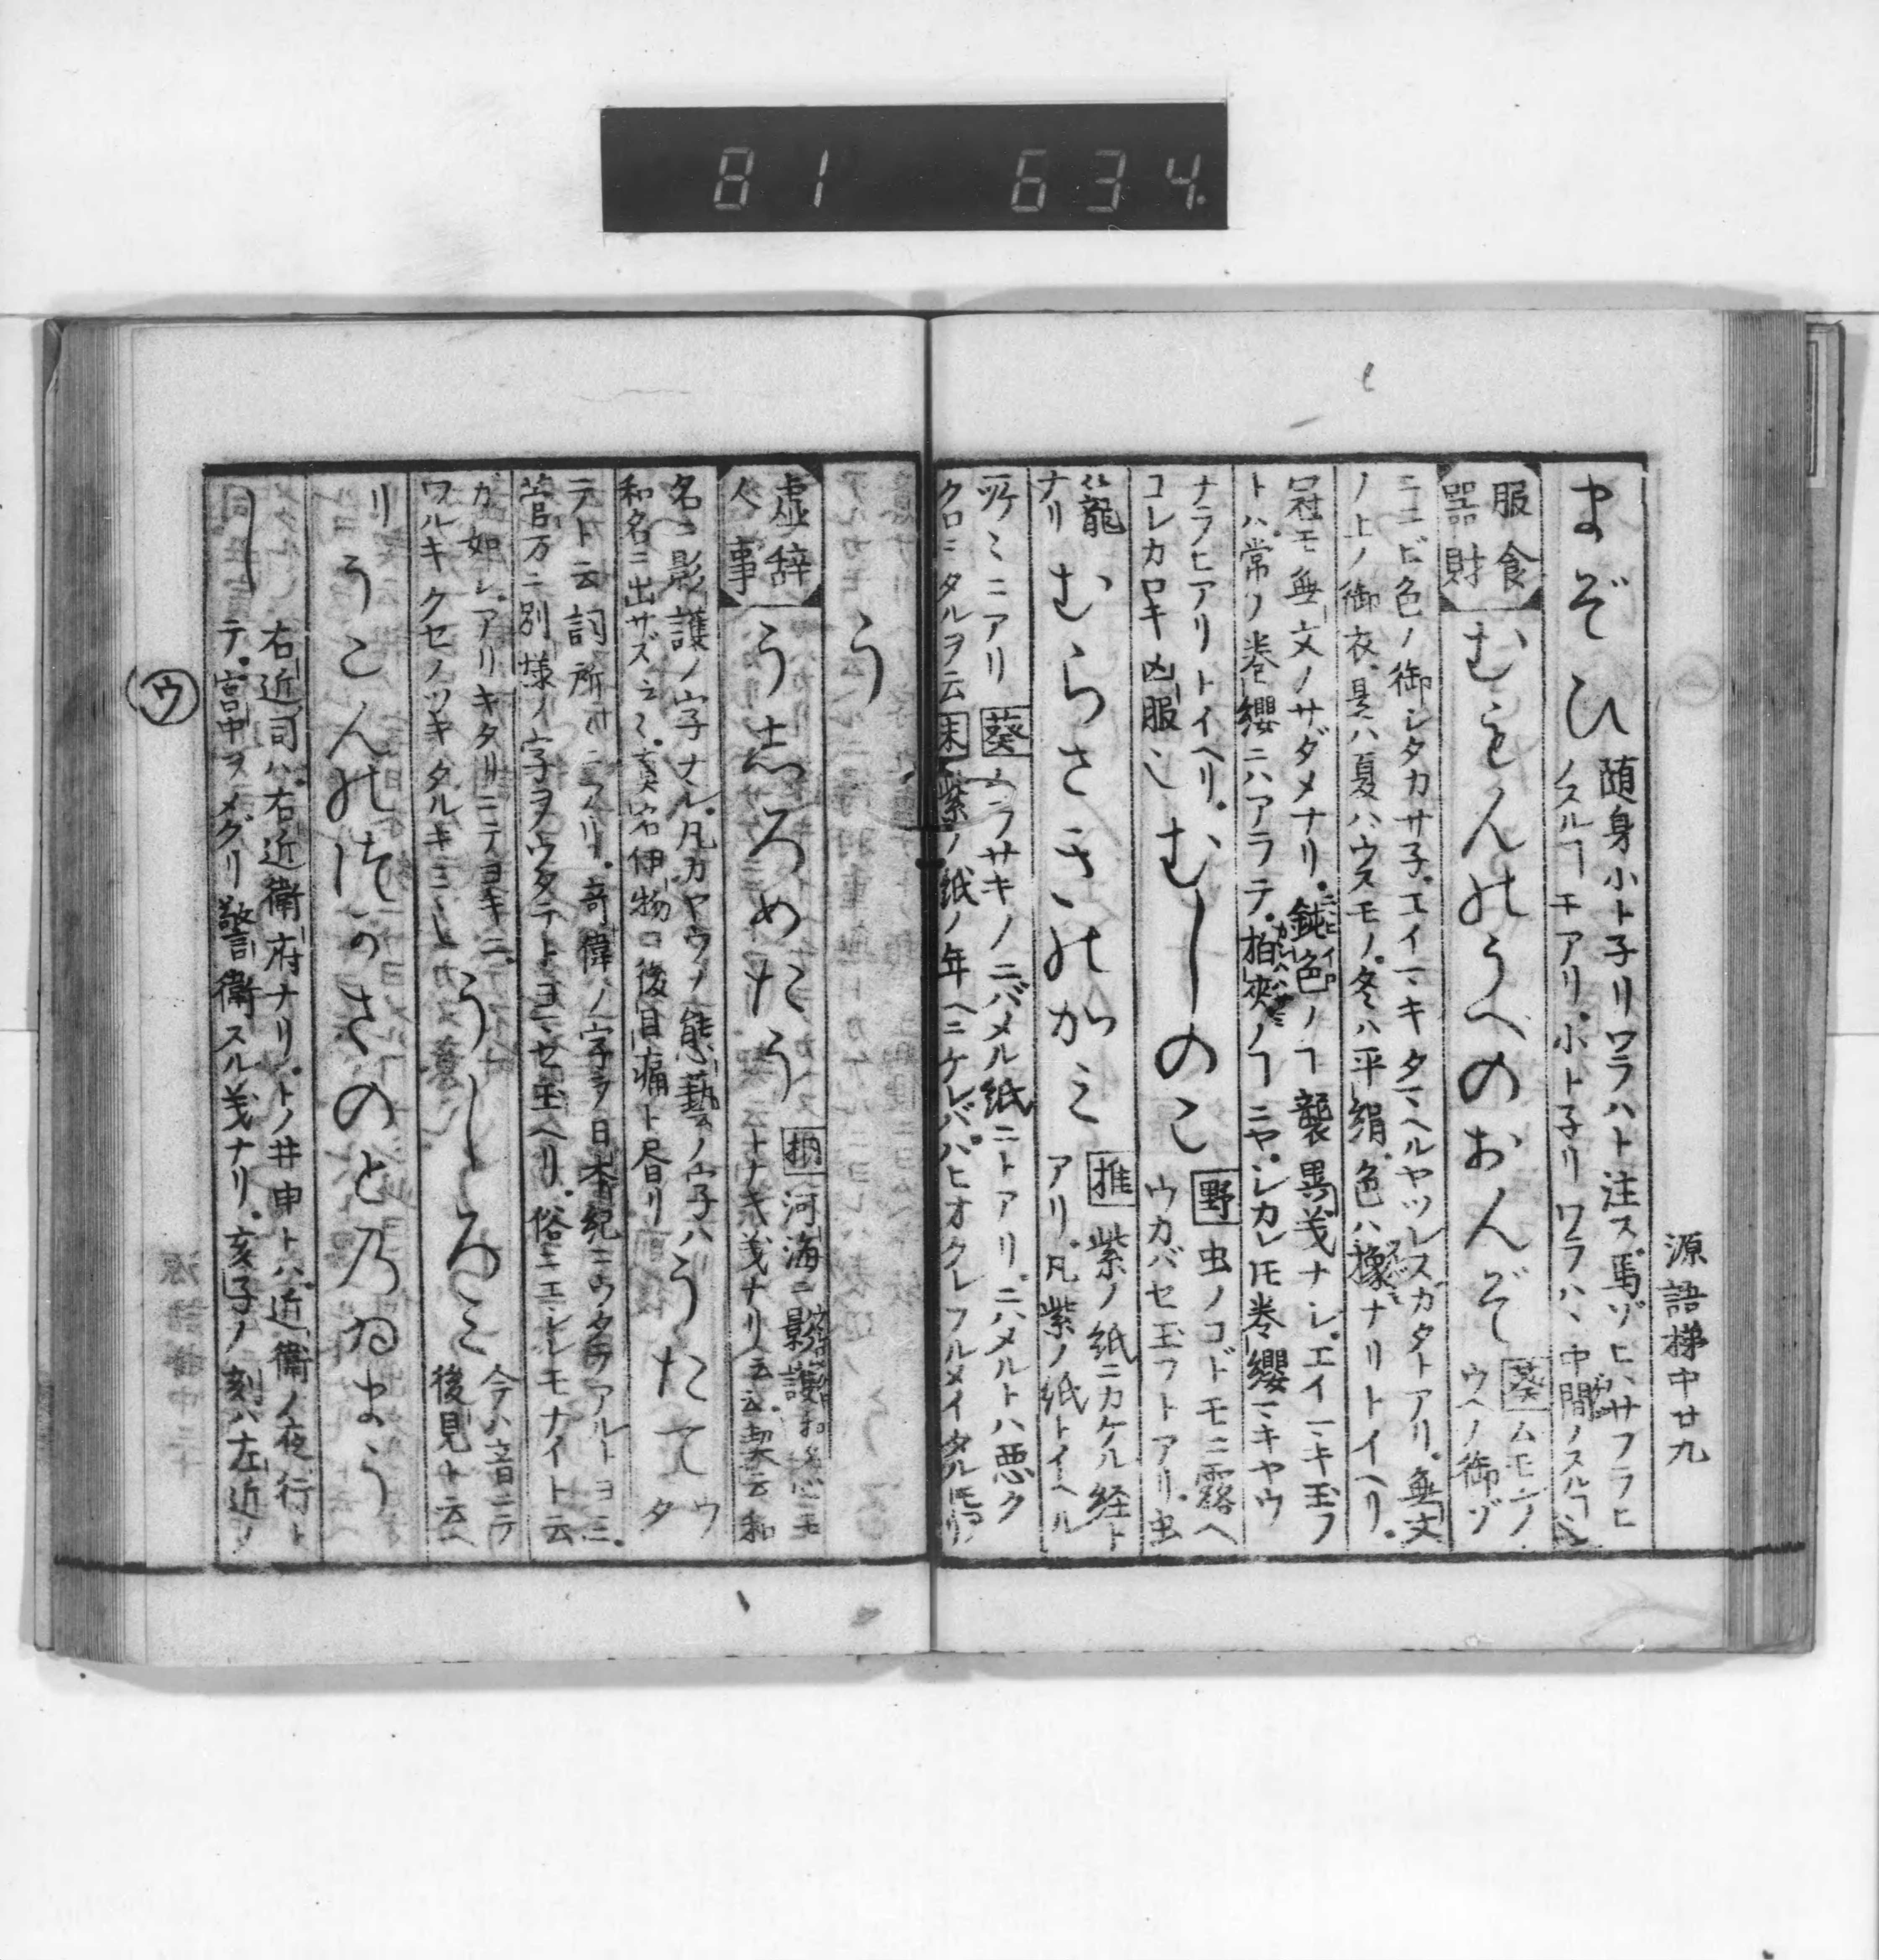 81 634
源語梯中廿九
まぞひ
随身小ト子リワラハト注ス馬ゾヒハサフラヒ
ノスルヿモアリ小ト子リワラハヽ中間ノスルヿ
服食
器財
むもんのうへのおんぞ
葵ムモンノ
ウヘノ御ゾ
ニニビ色ノ御シタカサ子エイマキタマヘルヤツレスカタトアリ無文
ノ上ノ御衣具ハ夏ハウスモノ冬ハ平絹色ハ橡ナリトイヘリ
冠モ無文ノサダメナリ鈍色ノヿ襲異義ナシエイマキ玉フ
トハ常ノ巻纓ニハアラテ柏夾ノヿニヤシカレ𪜈巻纓マキヤウ
ナラヒアリトイヘリ
コレカロキ凶服
むしのこ
野虫ノコドモニ露ヘ
ウカバセ玉フトアリ虫
籠
ナリ
むらさきのかみ
推紫ノ紙ニカケル経ト
アリ凡紫ノ紙トイヘル
所〻ニアリ葵ムラサキノニバメル紙ニトアリニハメルトハ悪ク
クロニタルヲ云末紫ノ紙ノ年ヘニケレババヒオクレフルメイタル
う
虚辞
人事
うしろめたう
河海ニ影護
トナキ義ナリ云云契云和
名ニ影護ノ字ナル凡カヤウノ態藝ノ字ハ
和名ニ出サズ 後目痛ト
うたて
ウ
タ
テト云詞所 奇偉ノ字ヲ日本紀ニウタテアルトヨミ
菅万ニ別様ノ字ヲウタテトヨマセ玉ヘリ俗ニエシレモナイト云
カ如シアリキタリニテヨキニ
ワルキクセノツキタルキミ
うしろみ
今ハ音ニテ
後見ト云ヘ
リ
うこんのつかさのとのゐまうし
右近司ハ右近衛府ナリトノ井申トハ近衛ノ夜行ト
テ宮中ヲメグリ警衛スル義ナリ亥子ノ刻ハ左近ノ
ウ